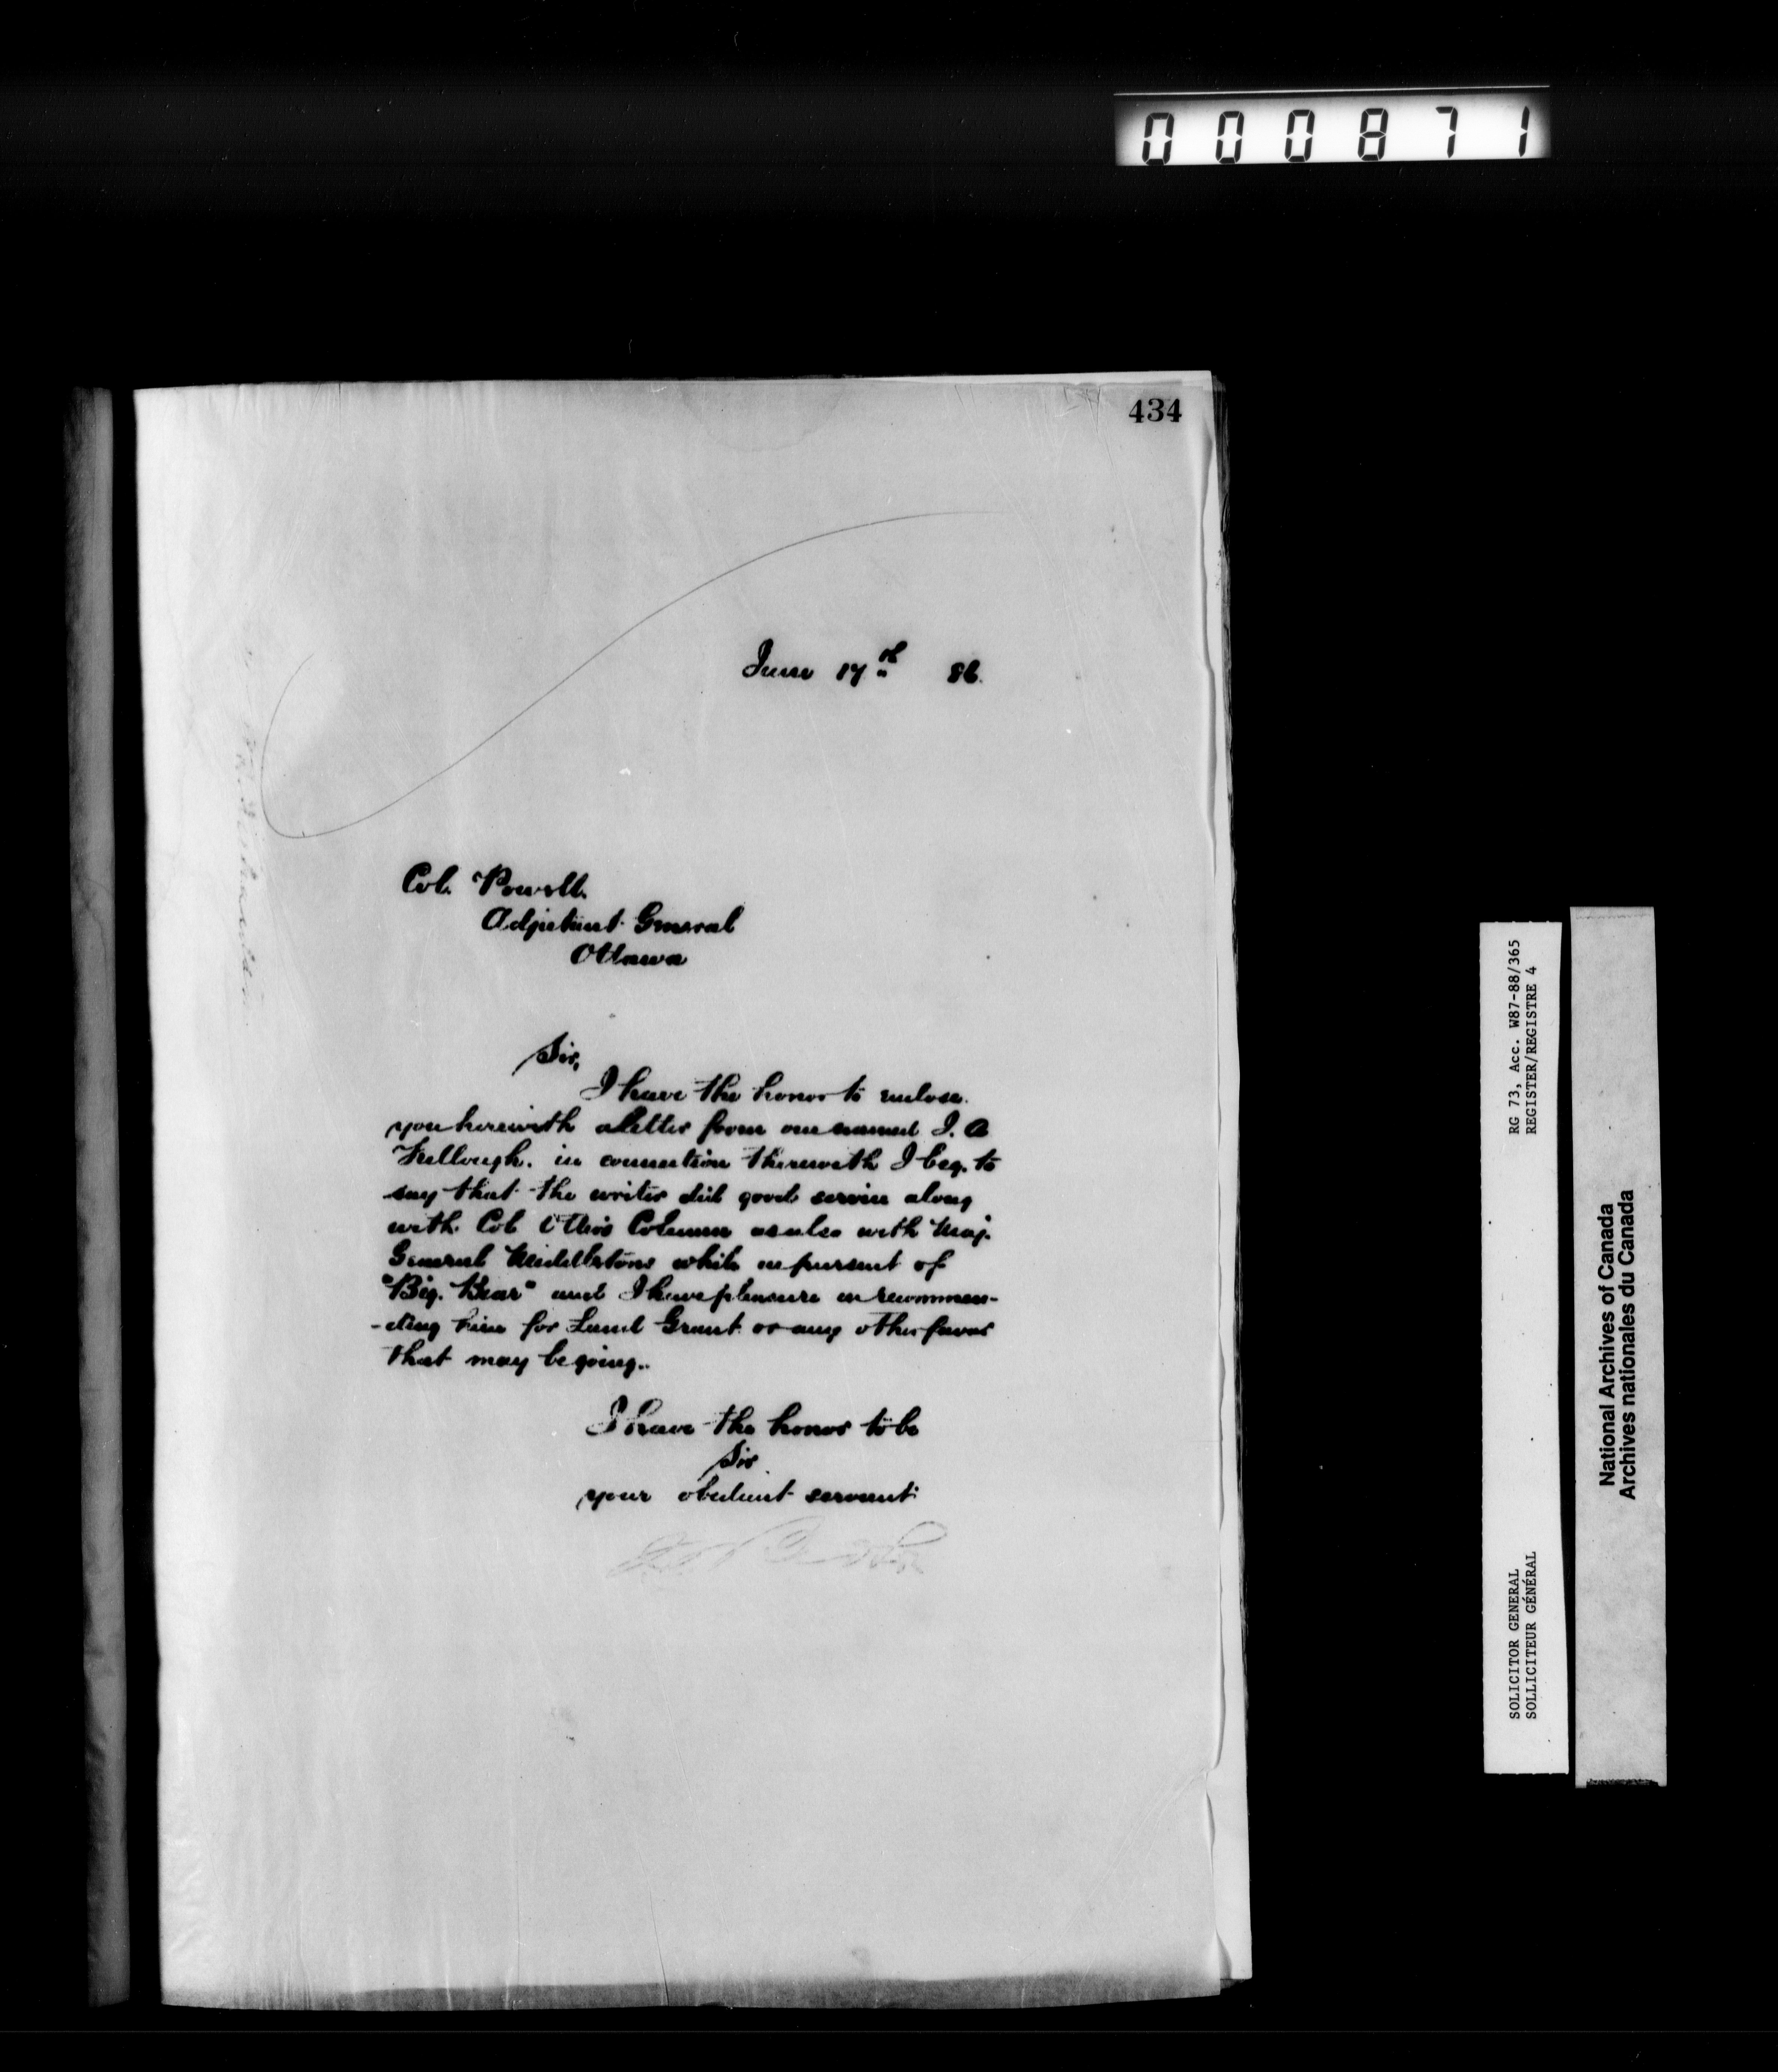 000871
434
June 17th 86.
Col. Powell.
Adjutant General
Ottawa
Sir,
I have the honor to enclose
you herewith a letter from one named J. A
Kellough. in connection therewith I beg. to
say that the writer did good service along
with Col Otter's Column as also with Maj.
General Middletons while in pursuit of
"Big. Bear" and I have pleasure in recommen-
-ding him for Land Grant or any other favor
that may be going..
I have the honor to be
Sir
your obedient servant
RG 73, Acc. W87-88/365
REGISTER/REGISTRE 4
SOLICITOR GENERAL
SOLLICITEUR GÉNÉRAL
National Archives of Canada
Archives nationales du Canada